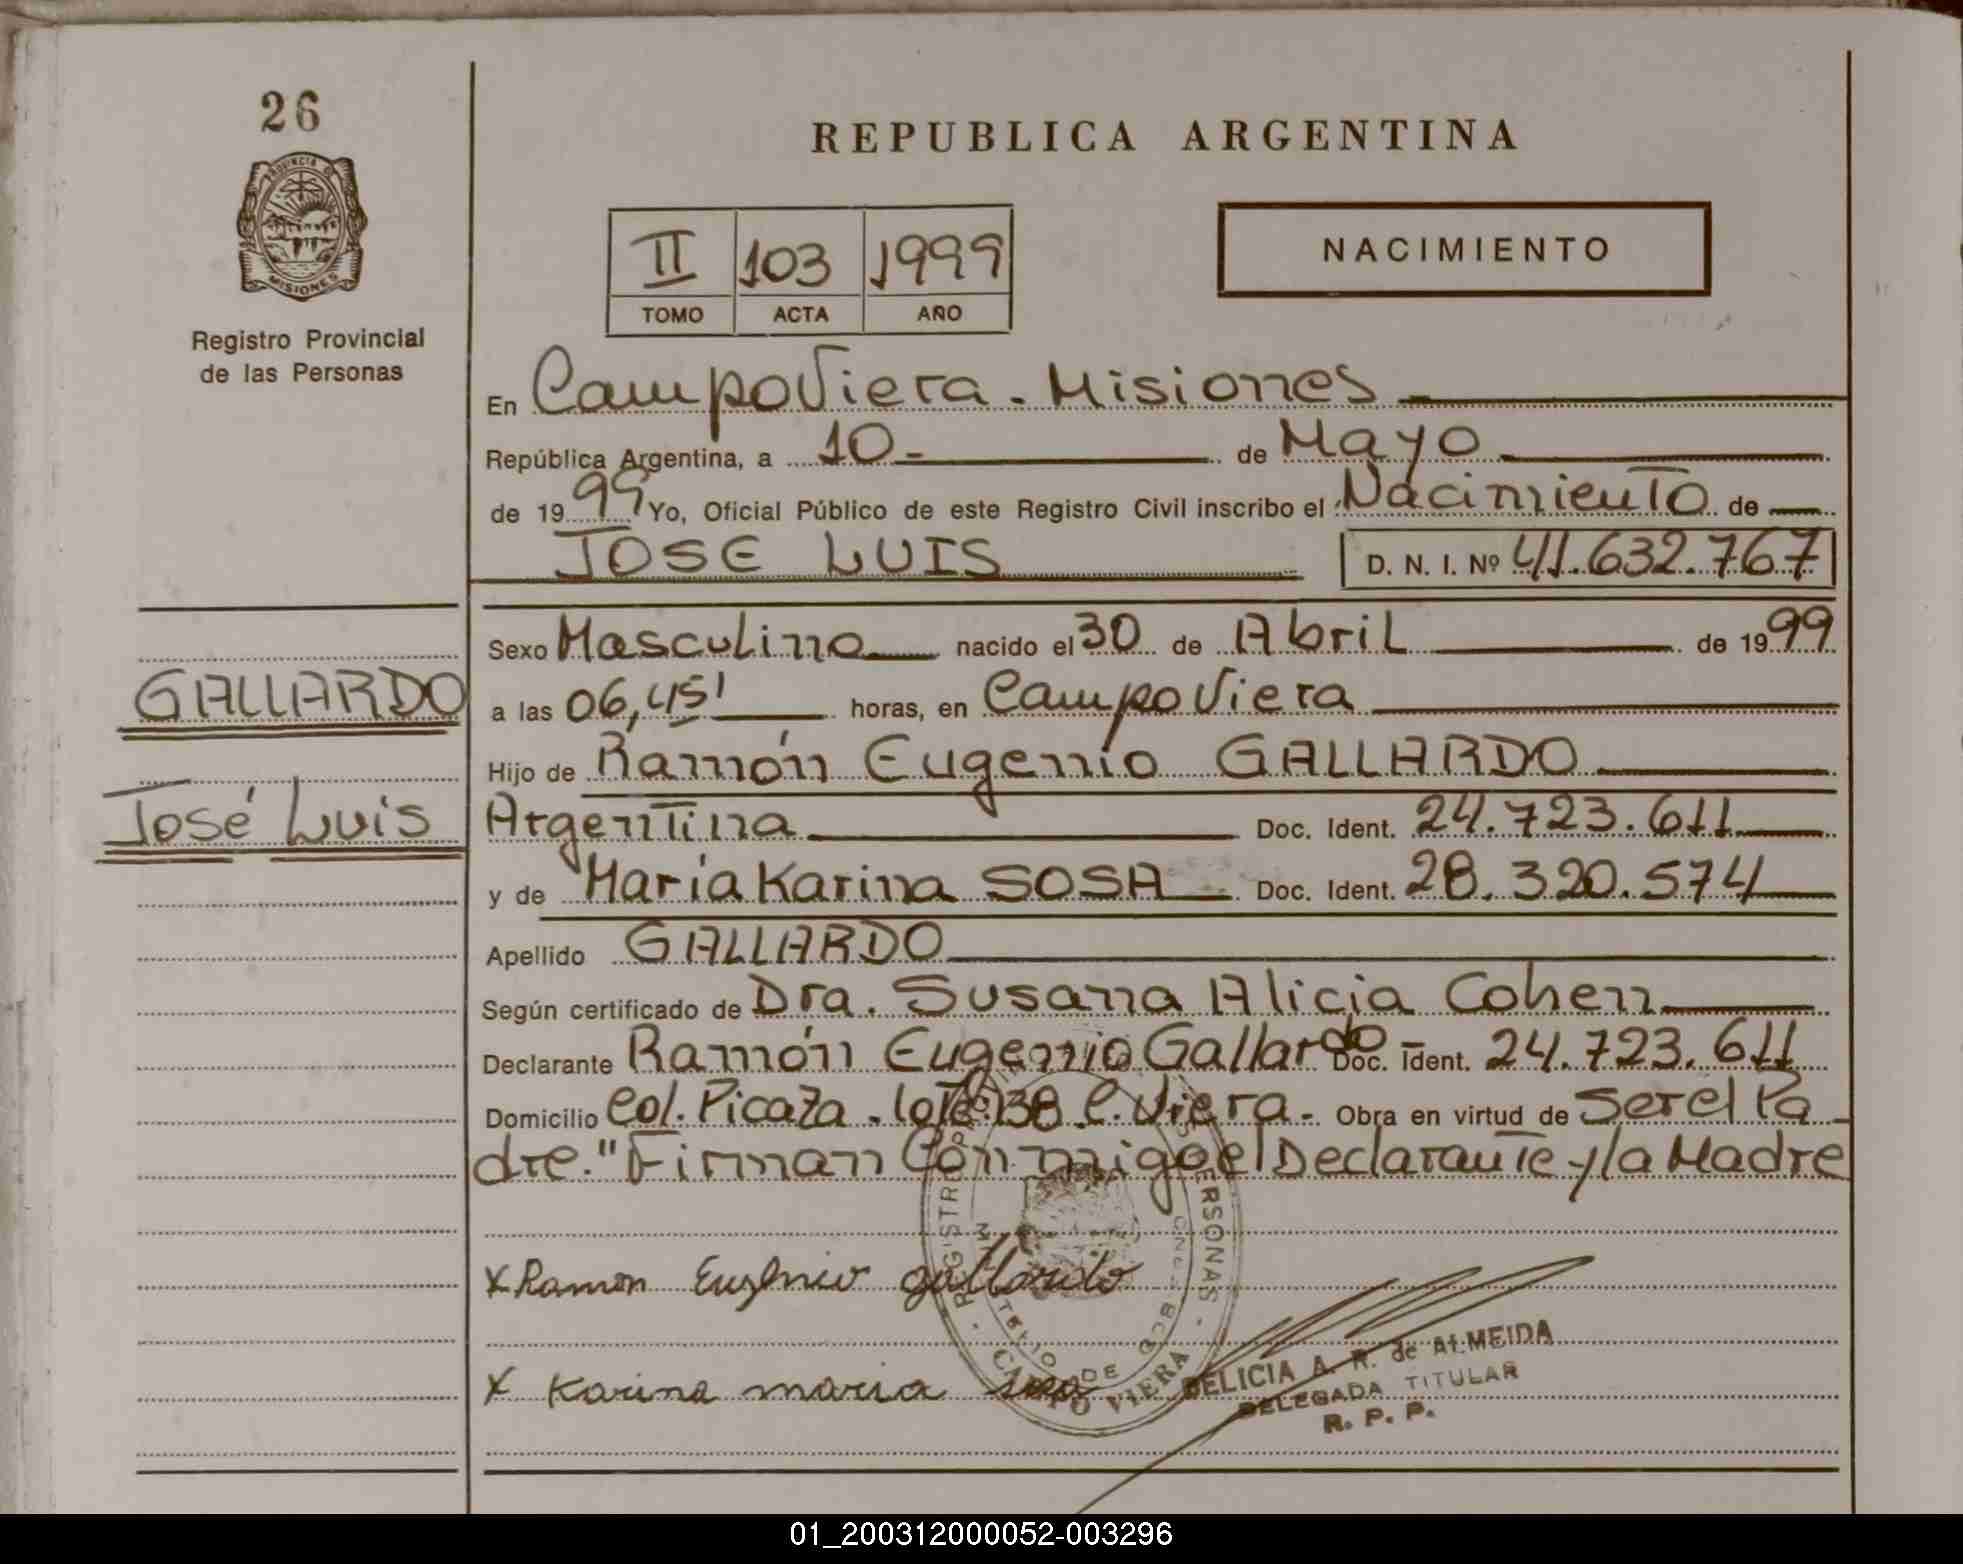 26
PROVINCIA D
MISIONES
Registro Provincial
de las Personas
REPUBLICA ARGENTINA
II 103 1999
TOMO ACTA AÑO
NACIMIENTO
En Campo Viera - Misiones
República Argentina, a 10 - de Mayo
de 1999 Yo, Oficial Público de este Registro Civil inscribo el Nacimiento de
JOSE LUIS D. N. I. Nº 41.632.767
Sexo Masculino nacido el 30 de Abril de 1999
GALLARDO
a las 06,45' horas, en Campo Viera
Hijo de Ramón Eugenio GALLARDO
José Luis
Argentina Doc. Ident. 24.723.611
y de María Karina SOSA Doc. Ident. 28.320.574
Apellido GALLARDO
Según certificado de Dra. Susana Alicia Cohen
Declarante Ramón Eugenio Gallardo Doc. Ident. 24.723.611
Domicilio Col. Picaza - lote 138 C. Viera - Obra en virtud de Ser el Pa
dre." Firman Conmigo el Declarante y la Madre
REGISTRO PERSONAS
CAMPO VIERA
x Ramon Eugenio gallardo
x Karina maria sosa
DELICIA A. R. de ALMEIDA
DELEGADA TITULAR
R. P. P.
01_200312000052-003296